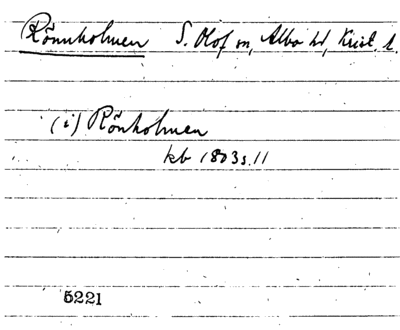 Rönnholmen S. Olof sn, Albo hd, Krist. l.
(i) Rönholmen
kb 1803 s. 11
5221